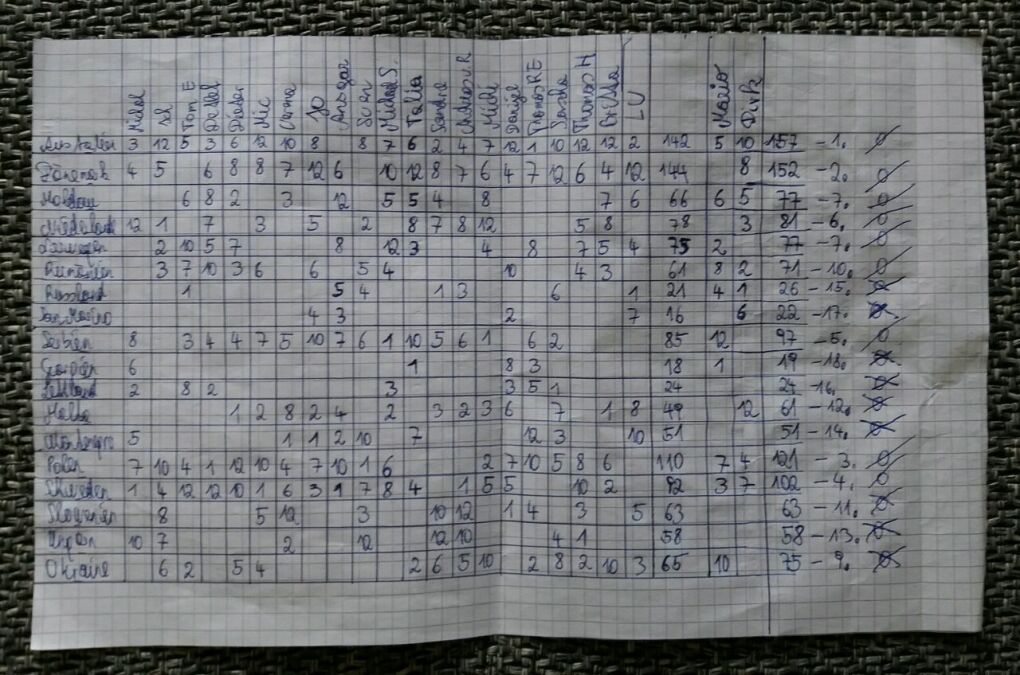 Michal sel Tom E Detlef Dieter Mic Carina Jo Ansgar Sven Michael S. Talia Sandra Andreas R Michi Danijel Thomas RE Sascha Thomas M LU Mario Dirk
Australien 3 12 5 3 6 12 10 8 8 7 6 2 4 7 12 1 10 12 12 2 142 5 10 157 - 1.
Dänemark 4 5 6 8 8 7 12 6 10 12 8 7 6 4 7 12 6 4 12 144 8 152 - 2.
Moldau 6 8 2 3 12 5 5 4 8 7 6 66 6 5 77 - 7.
Niederlande 12 1 7 3 5 2 8 7 8 12 5 8 78 3 81 - 6.
2 10 5 7 8 12 3 4 8 7 5 4 75 2 77 - 7.
Rumänien 3 7 10 3 6 6 5 4 10 4 3 61 8 2 71 - 10.
Russland 1 5 4 1 3 6 1 21 4 1 26 - 15.
San Marino 4 3 2 7 16 6 22 - 17.
Serbien 8 3 4 4 7 5 10 7 6 1 10 5 6 1 6 2 85 12 97 - 5.
Georgien 6 1 8 3 18 1 19 - 18.
Lettland 2 8 2 3 3 5 1 24 24 - 16.
Malta 1 2 8 2 4 2 3 2 3 6 7 1 8 49 12 61 - 12.
Montenegro 5 1 1 2 10 7 12 3 10 51 51 - 14.
Polen 7 10 4 1 12 10 4 7 10 1 6 2 7 10 5 8 6 110 7 4 121 - 3.
Schweden 1 4 12 12 10 1 6 3 1 7 8 4 1 5 5 10 2 92 3 7 102 - 4.
Slowenien 8 5 12 3 10 12 1 4 3 5 63 63 - 11.
Ungarn 10 7 2 12 12 10 4 1 58 58 - 13.
Ukraine 6 2 5 4 2 6 5 10 2 8 2 10 3 65 10 75 - 9.